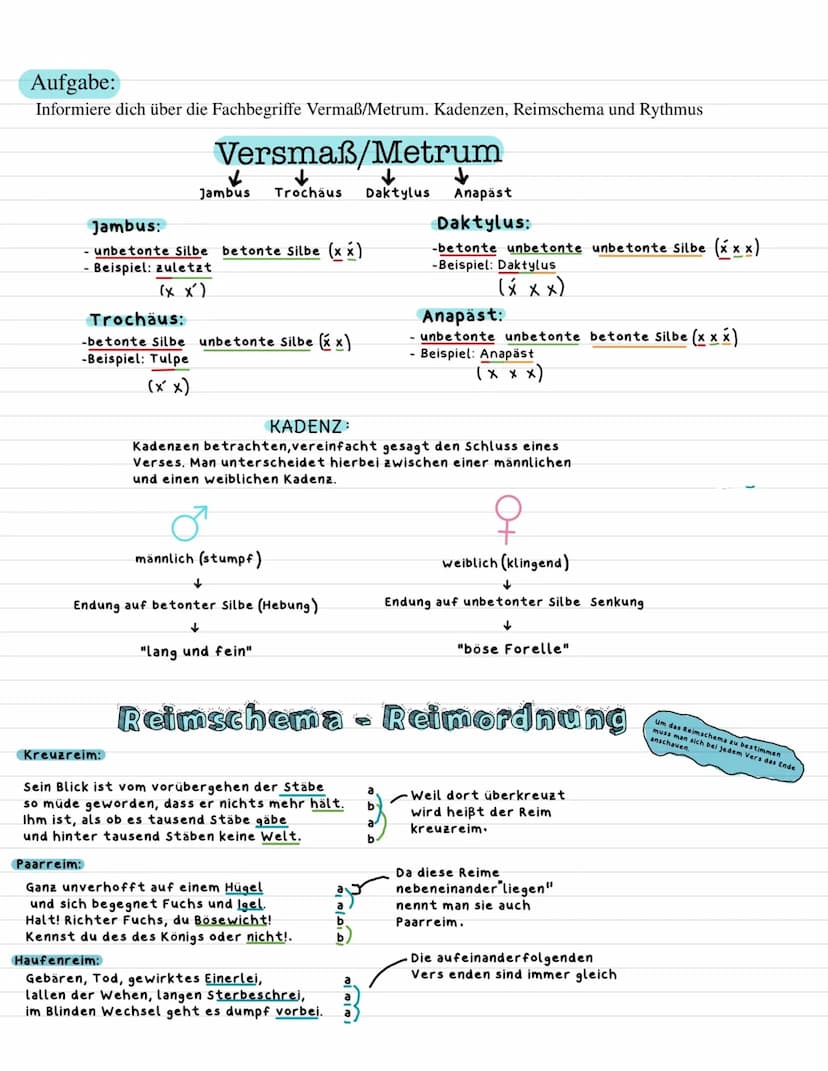 Aufgabe:
Informiere dich über die Fachbegriffe Vermaß/Metrum. Kadenzen, Reimschema und Rythmus
Versmaß/Metrum
Jambus Trochäus Daktylus Anapäst
Jambus:
- unbetonte Silbe betonte Silbe (x x́)
- Beispiel: zuletzt
(x x´)
Trochäus:
-betonte Silbe unbetonte Silbe (x́ x)
-Beispiel: Tulpe
(x´ x)
Daktylus:
-betonte unbetonte unbetonte Silbe (x́ x x)
-Beispiel: Daktylus
(x́ x x)
Anapäst:
- unbetonte unbetonte betonte Silbe (x x x́)
- Beispiel: Anapäst
(x x x)
KADENZ:
Kadenzen betrachten,vereinfacht gesagt den Schluss eines
Verses. Man unterscheidet hierbei zwischen einer männlichen
und einen weiblichen Kadenz.
männlich (stumpf)
Endung auf betonter Silbe (Hebung)
"lang und fein"
weiblich (klingend)
Endung auf unbetonter Silbe Senkung
"böse Forelle"
Reimschema - Reimordnung
Um das Reimschema zu bestimmen
muss man sich bei jedem Vers das Ende
anschauen.
Kreuzreim:
Sein Blick ist vom vorübergehen der Stäbe a
so müde geworden, dass er nichts mehr hält. b
Ihm ist, als ob es tausend Stäbe gäbe a
und hinter tausend Stäben keine Welt. b
Weil dort überkreuzt
wird heißt der Reim
kreuzreim.
Paarreim:
Ganz unverhofft auf einem Hügel a
und sich begegnet Fuchs und Igel. a
Halt! Richter Fuchs, du Bösewicht! b
Kennst du des des Königs oder nicht!. b
Da diese Reime
nebeneinander"liegen"
nennt man sie auch
Paarreim.
Haufenreim:
Gebären, Tod, gewirktes Einerlei, a
lallen der Wehen, langen Sterbeschrei, a
im Blinden Wechsel geht es dumpf vorbei. a
Die aufeinanderfolgenden
Vers enden sind immer gleich